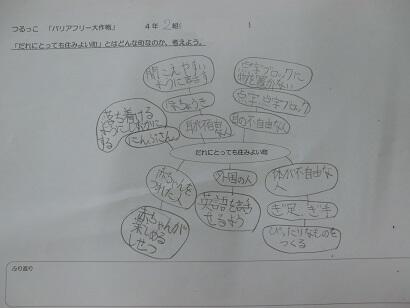 つるっこ 「バリアフリー大作戦」 4年 2組(
「だれにとっても住みよい町」とはどんな町なのか、考えよう。
聞こえやすい
ように話す
ほちょうき
耳が不自由な人
点字ブロックに
物を置かない
点字、点字ブロック
目の不自由な人
落ち着ける
ように
する
にんぷさん
だれにとっても住みよい町
赤ちゃんを
つれた人
赤ちゃんが
楽しめる
しせつ
外国の人
英語を話
せるよう
体が不自由な
人
ぎ足、ぎ手
ぴったりなものを
つくる
ふり返り